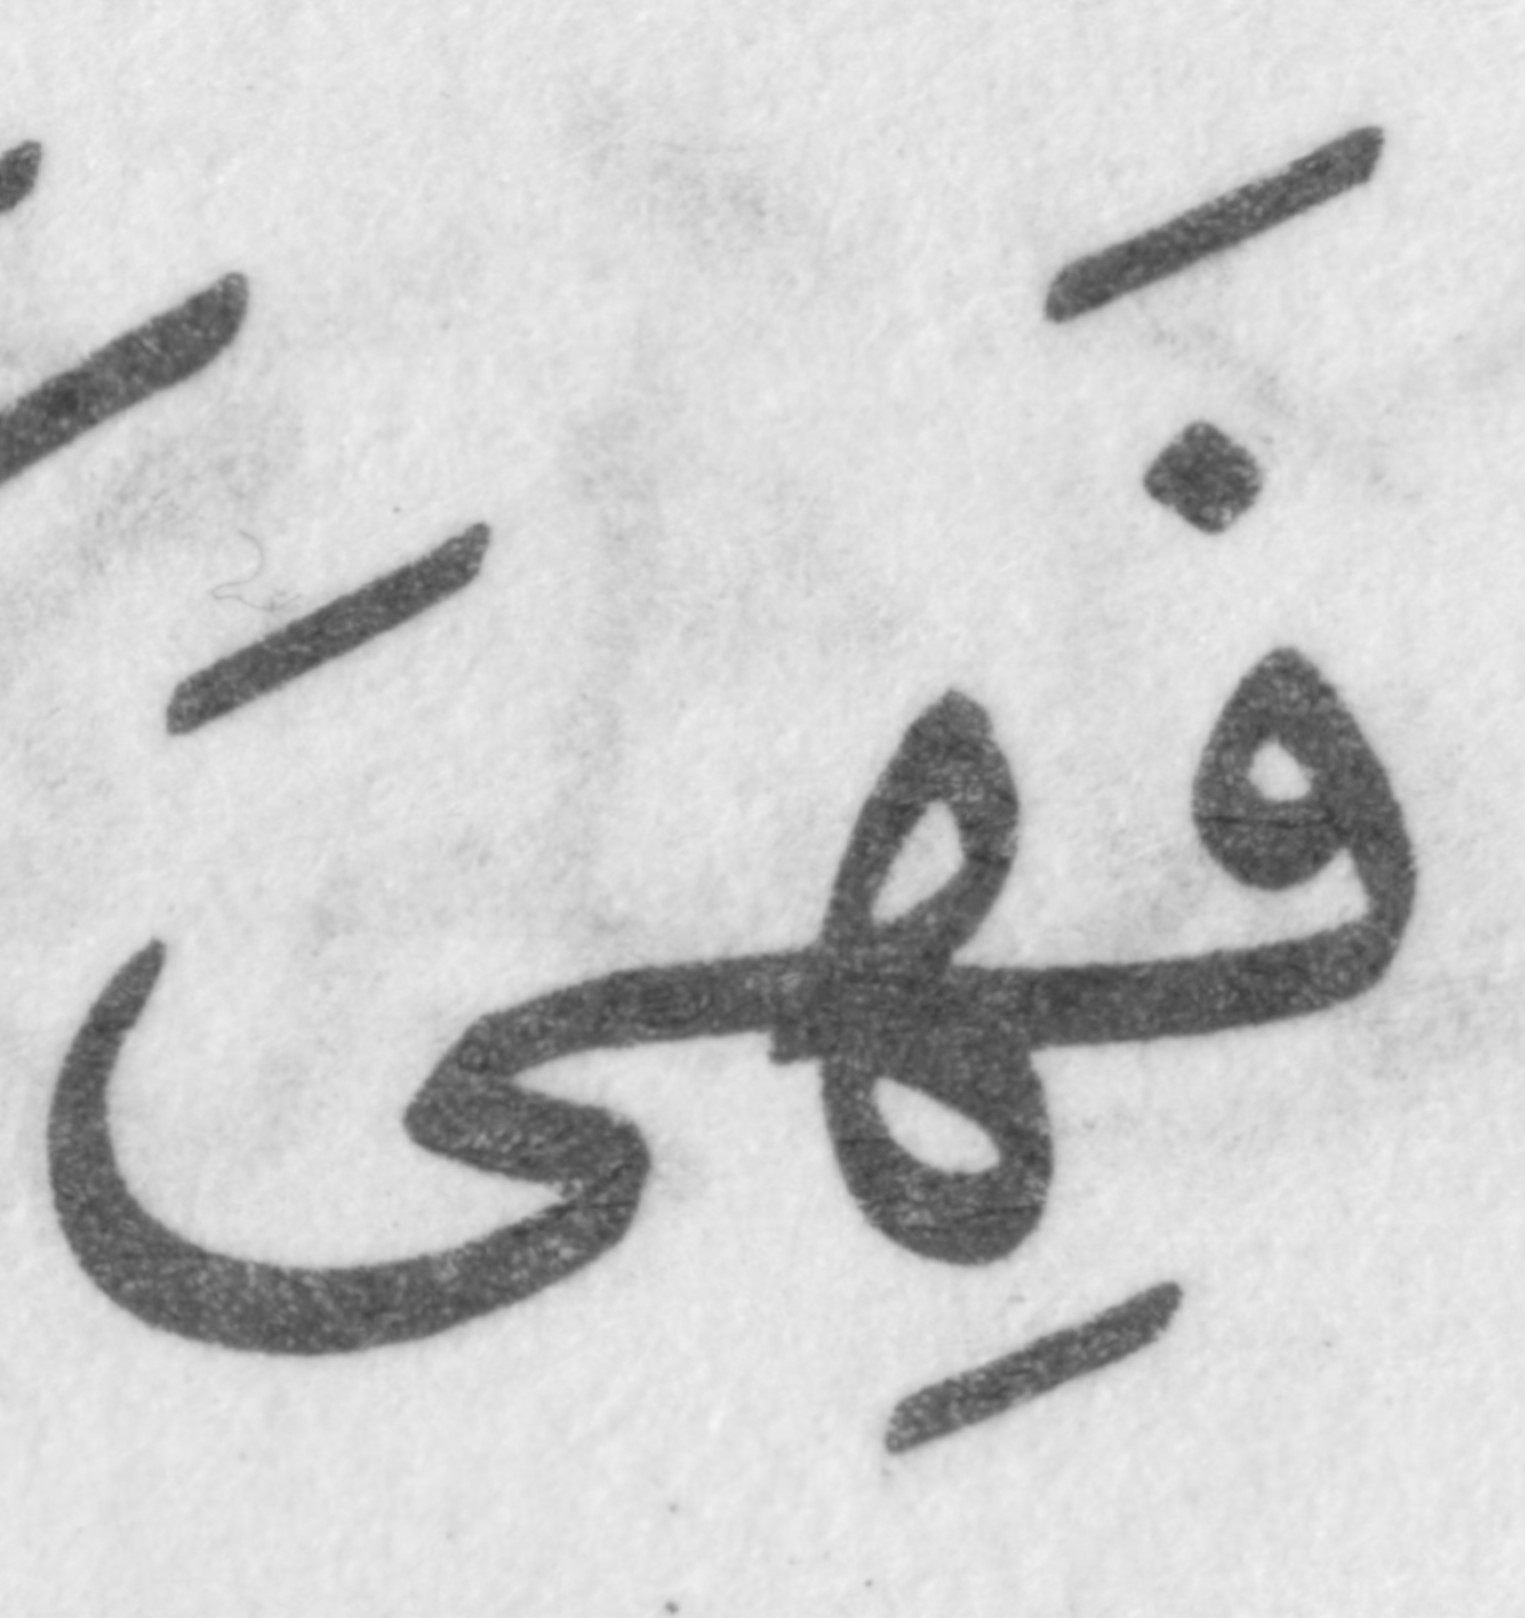 فَهِىَ